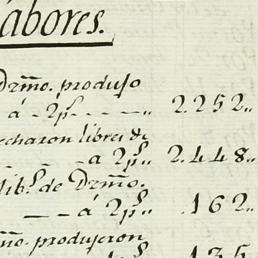 abores.
Dzmo. produjo
á - 2ps. - - „ 2.252„
charon libres de
- - - a 2ps„ 2.448„
lib.s de Dzmo.
- - á 2ps„ 162„
mo. produjeron
135